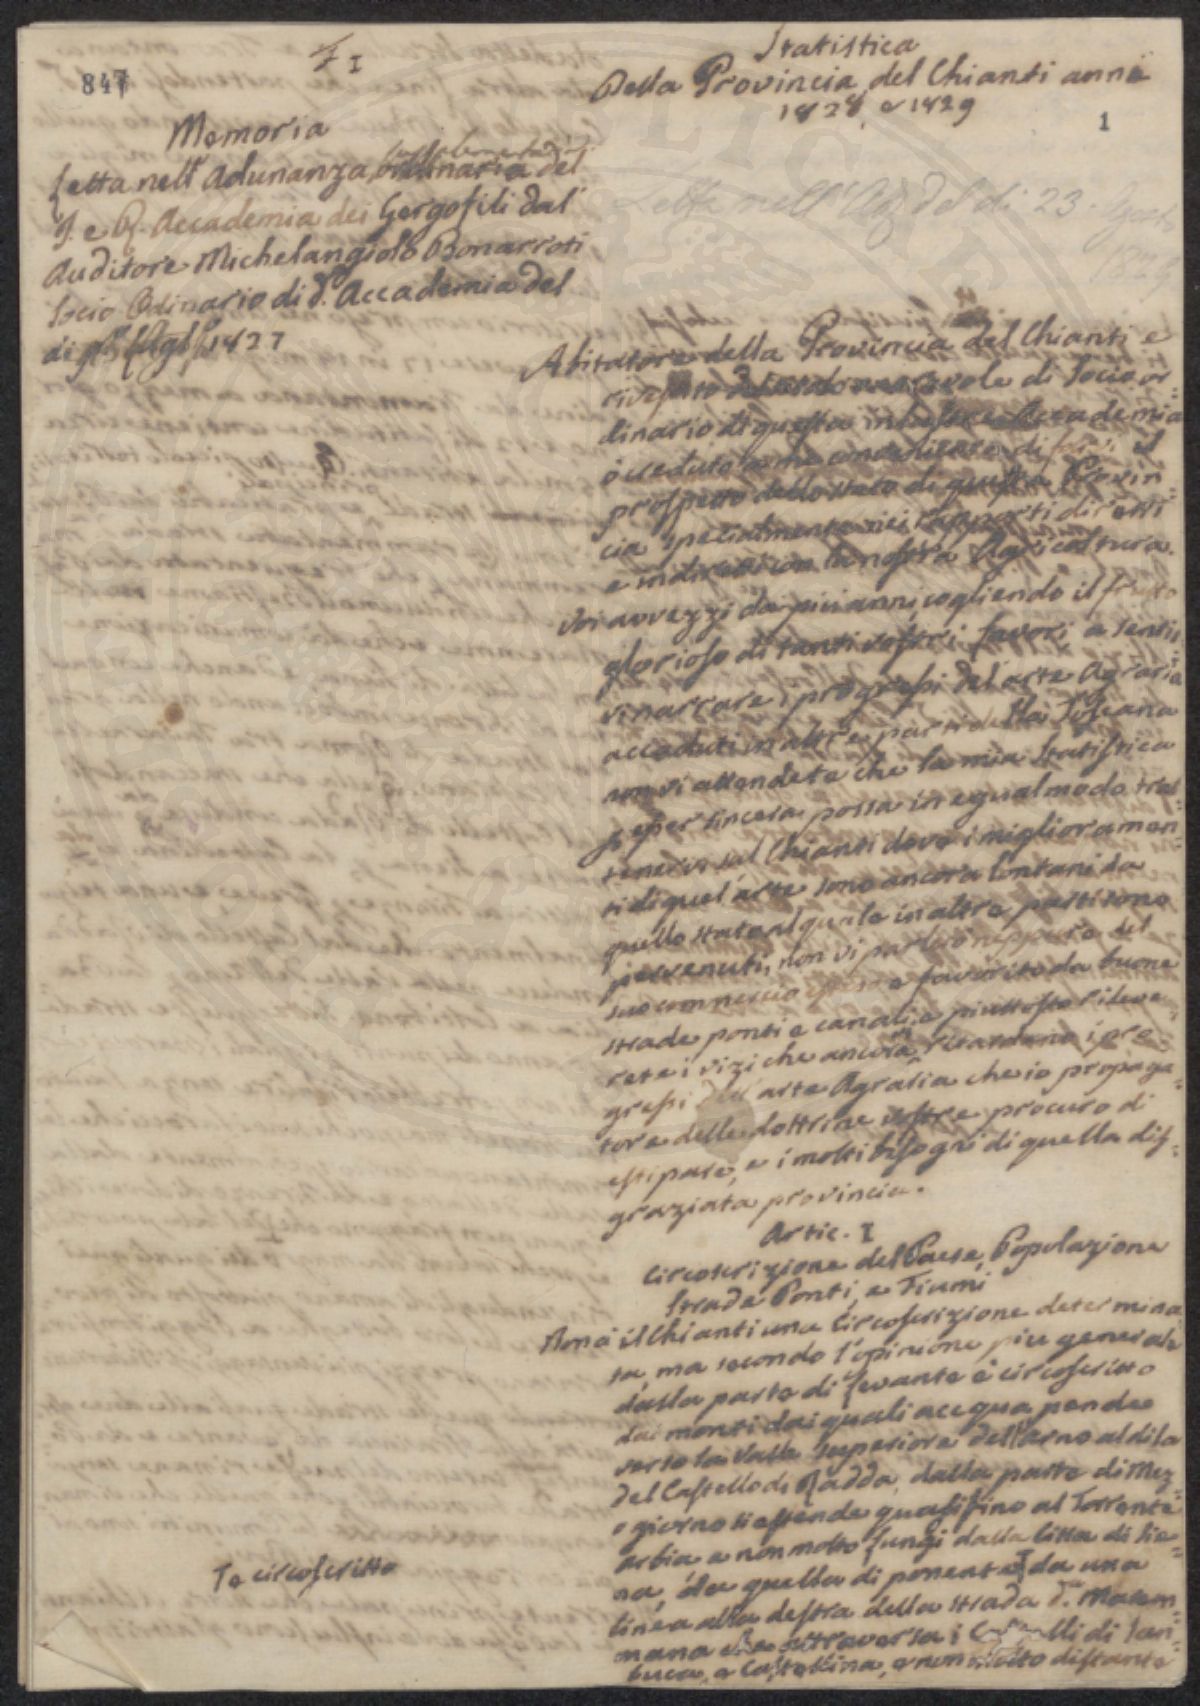 847
I
Statistica
Della Provincia del Chianti anni
1828 e 1829
1
Memoria
Letta nell' Adunanza ordinaria del
I. e R. Accademia dei Gergofili dal
Auditore Michelangiolo Bonarroti
Socio Odinario di d.ª Accademia del
di 1827
Letta nell' del di 23. Agosto
1829
Abitatore della Provincia del Chianti e
rivestito di Socio or=
dinario di questa Accademia
ò creduto a me di farvi il
prospetto dello stato di questa Provin=
cia specialmente nei rapporti diretti
e indiretti con la nostra Agricoltura.
Voi avvezzi da più anni cogliendo il frutto
glorioso di tanti vostri favori a senti=
vi narrare i progressi del arte Agraria
accaduti in altre parti della Toscana
non vi attendete che la mia Statistica
p esser sincera possa in egual modo trat=
tenervi sul Chianti dove i miglioramen=
ti di quel arte sono ancora lontani da
quello stato al quale in altre parti sono
pervenuti, non vi parlerò neppure del
suo commercio esteso e favorito da buone
strade ponti e canali, e piuttosto rileve=
rete i vizi che ancora vi ritardano i pro=
gressi dell' arte Agraria che io propaga=
tore delle dottrine vostre procuro di
estipare, e i molti bisogni di quella dis=
graziata provincia.
Artic. I
Circoscrizione del Paese, Popolazione
Strade Ponti, e Fiumi
Non à il Chianti una Circoscrizione determina
ta, ma secondo l'opinione più generale
dalla parte di Levante è circoscritto
dai monti dai quali acqua pende
verso la Valle superiore dell'arno al di la
del Castello di Radda, dalla parte di Mez=
ogiorno si estende quasi fino al Torrente
arbia e non molto lungi dalla Citta di Sie=
na, da quella di ponente da una
linea alla destra della strada d.ª Marem=
mana che attraversa i Castelli di San=
buca, e Castellina, e non molto distante
Te circoscritto